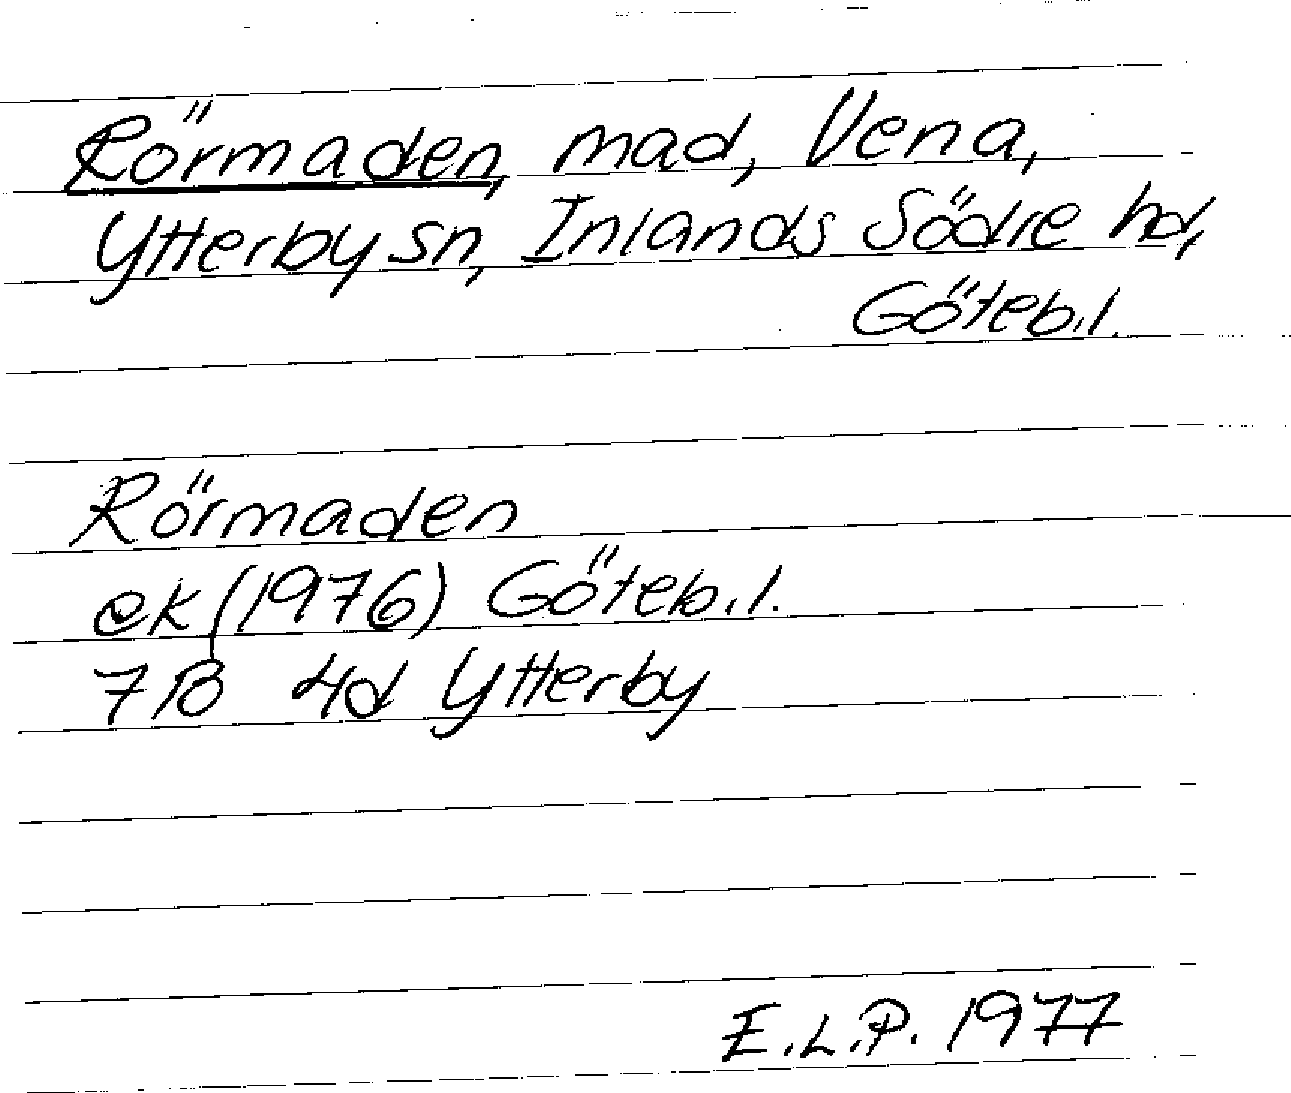 Rörmaden, mad, Vena,
Ytterby sn, Inlands Södre hd,
Göteb.l.
Rörmaden
ek (1976) Göteb.l.
7B 4d Ytterby
E.L.P. 1977